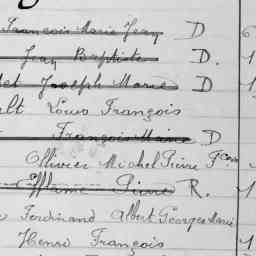 François Marie Jean D 6
Jean Baptiste D. 1
Joseph Marie D 1
Louis François
François Marie D
Ollivier Michel Pierre Fcois
Pierre R. 1
Ferdinand Albert Georges Marie
Henri François 1